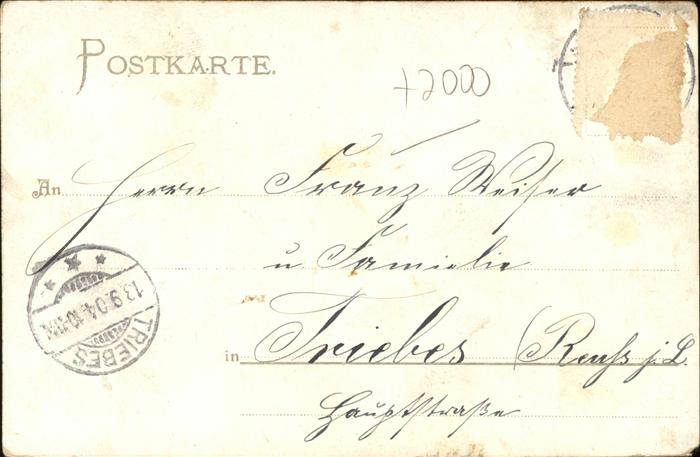 POSTKARTE.
+2000
An Herrn Franz Weiser
u. Familie
in Triebes (Reuß j. L.
Hauptstraße
TRIEBES
13.9.04.10-11V.